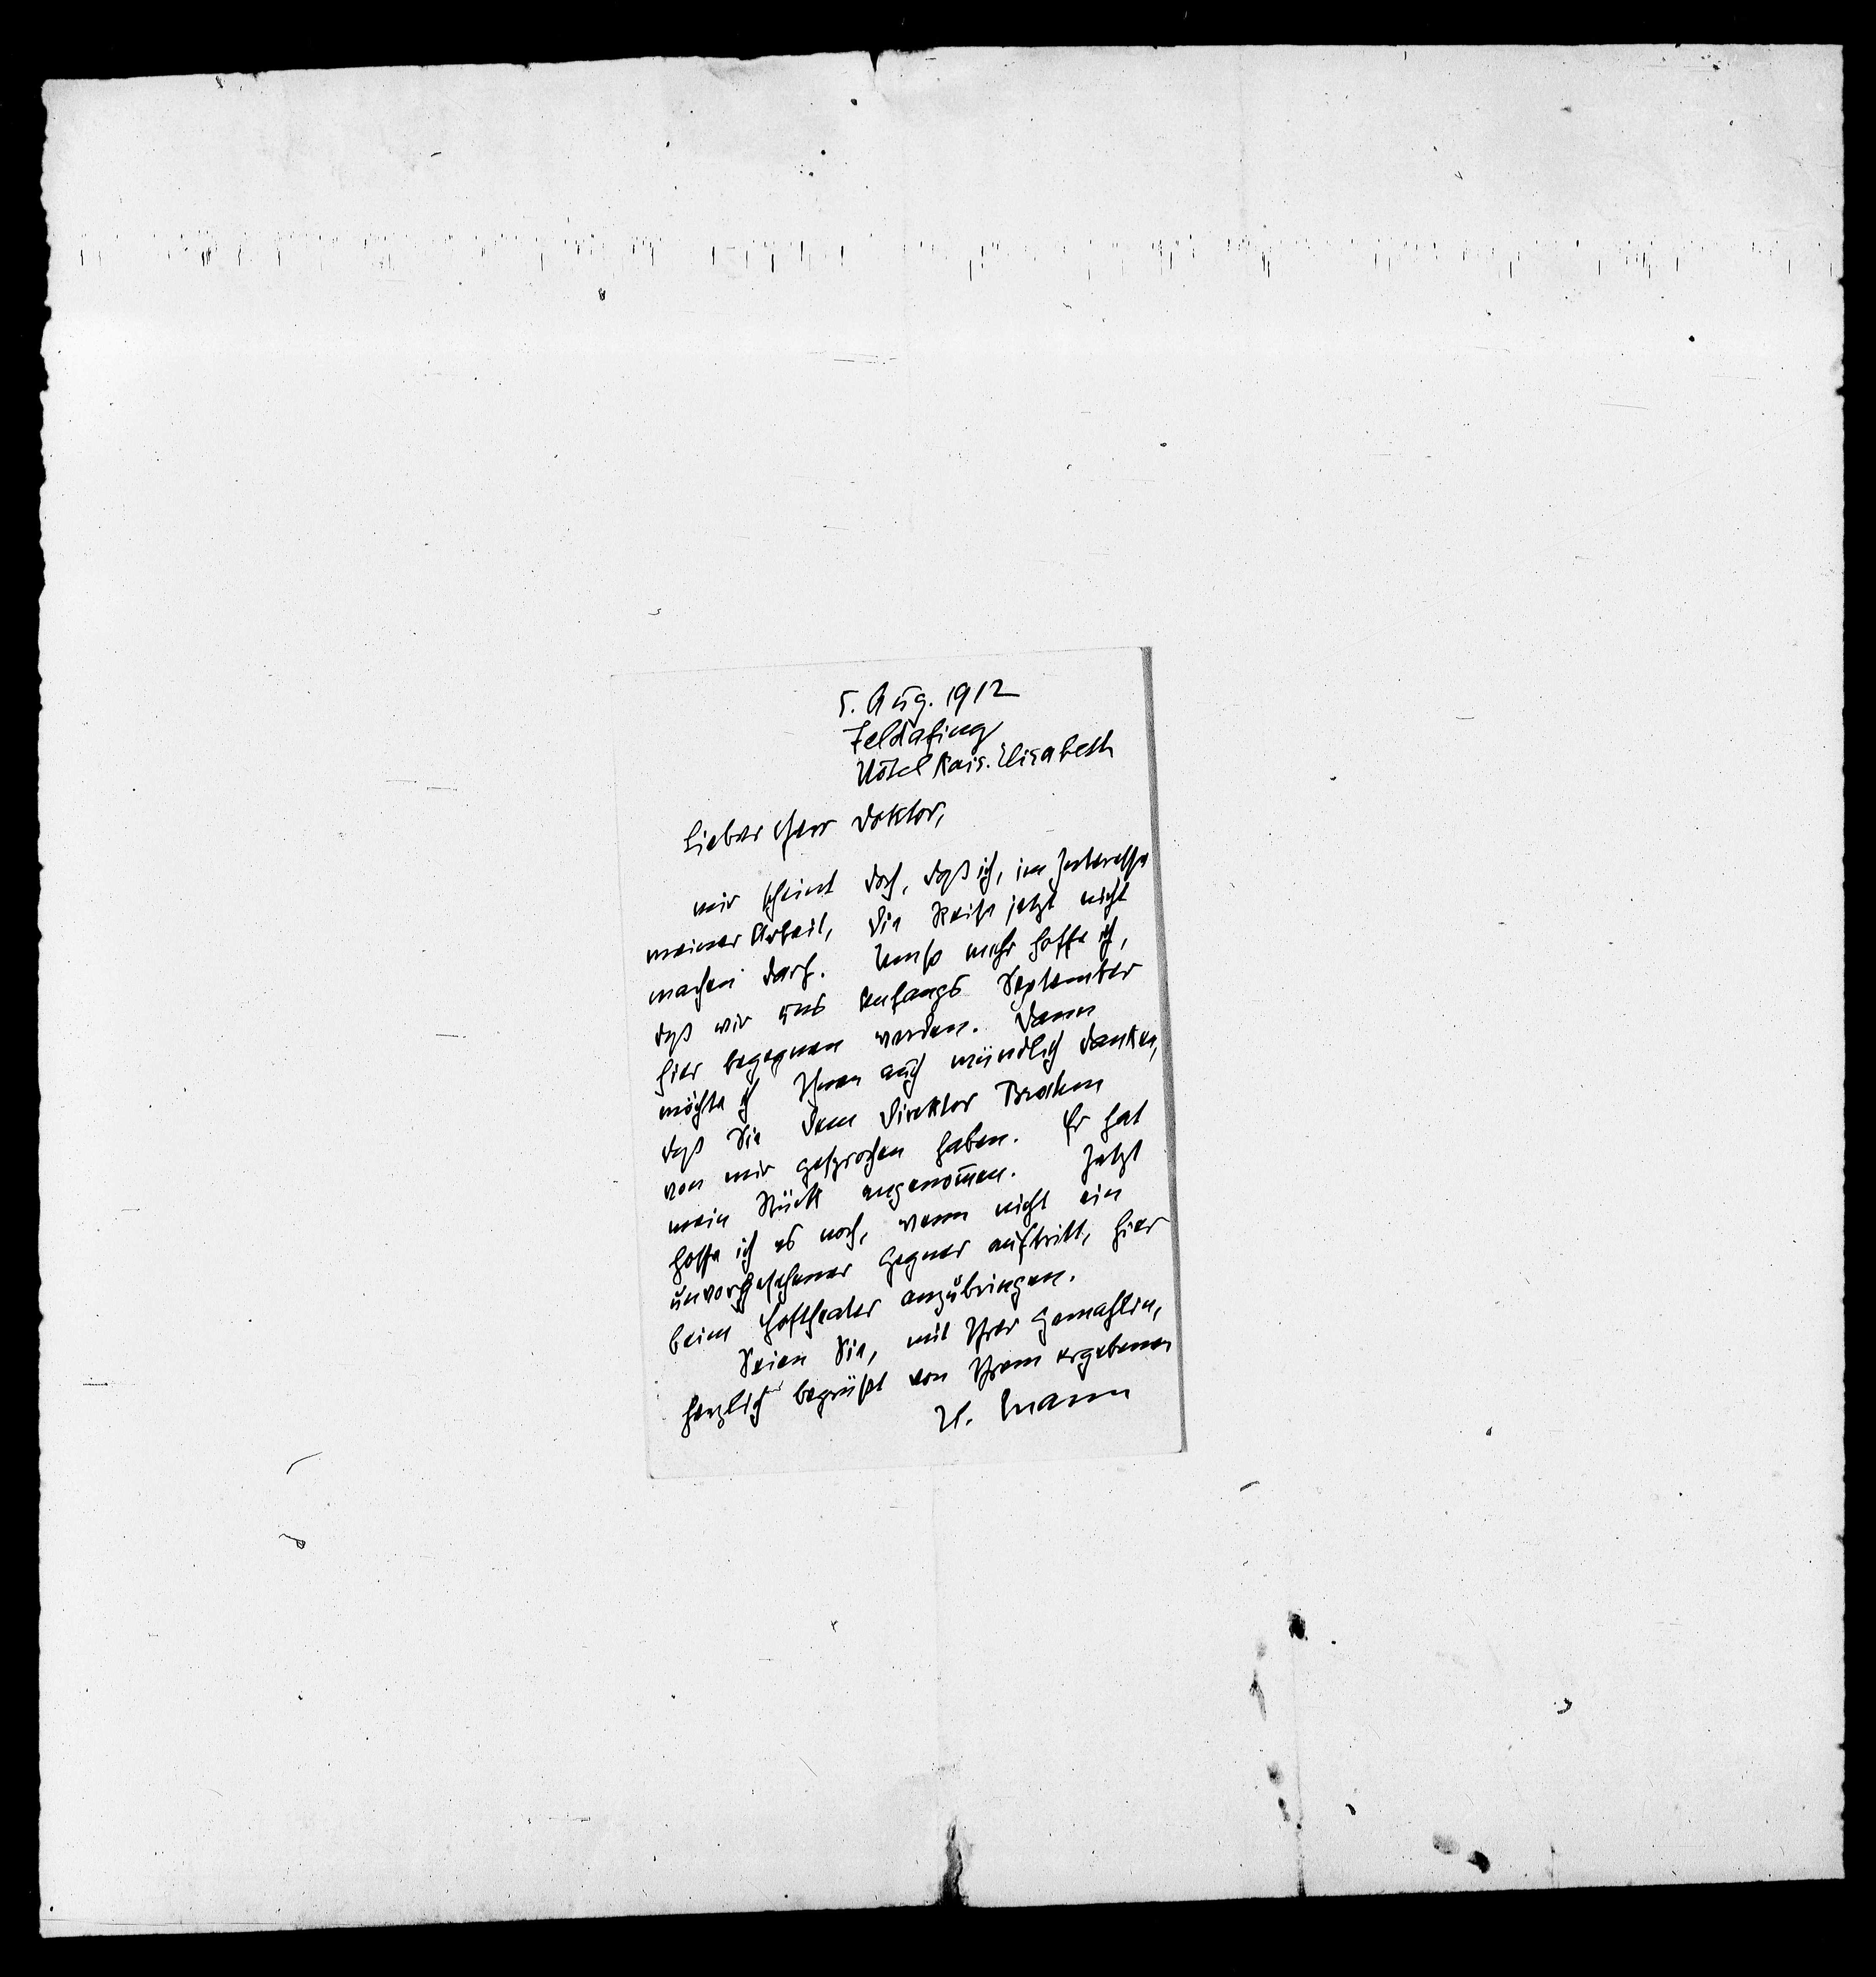 5. Aug. 1912
Feldafing
Hôtel Kais. Elisabeth
Lieber Herr Doktor,
mir scheint doch, daß ich, im Interesse
meiner Arbeit, die Reise jetzt nicht
machen darf. Umso mehr hoffe ich,
daß wir uns Anfangs September
hier begegnen werden. Dann
möchte ich Ihnen auch mündlich danken,
daß Sie dem Direktor Brahm
von mir gesprochen haben. Er hat
mein Stück angenom̅en. Jetzt
hoffe ich es noch, wenn nicht ein
unvorhgesehener Gegner auftritt, hier
beim Hoftheater anzubringen.
Seien Sie, mit Ihrer Gemahlin,
herzlich begrüßt von Ihrem ergebenen
H. Mann